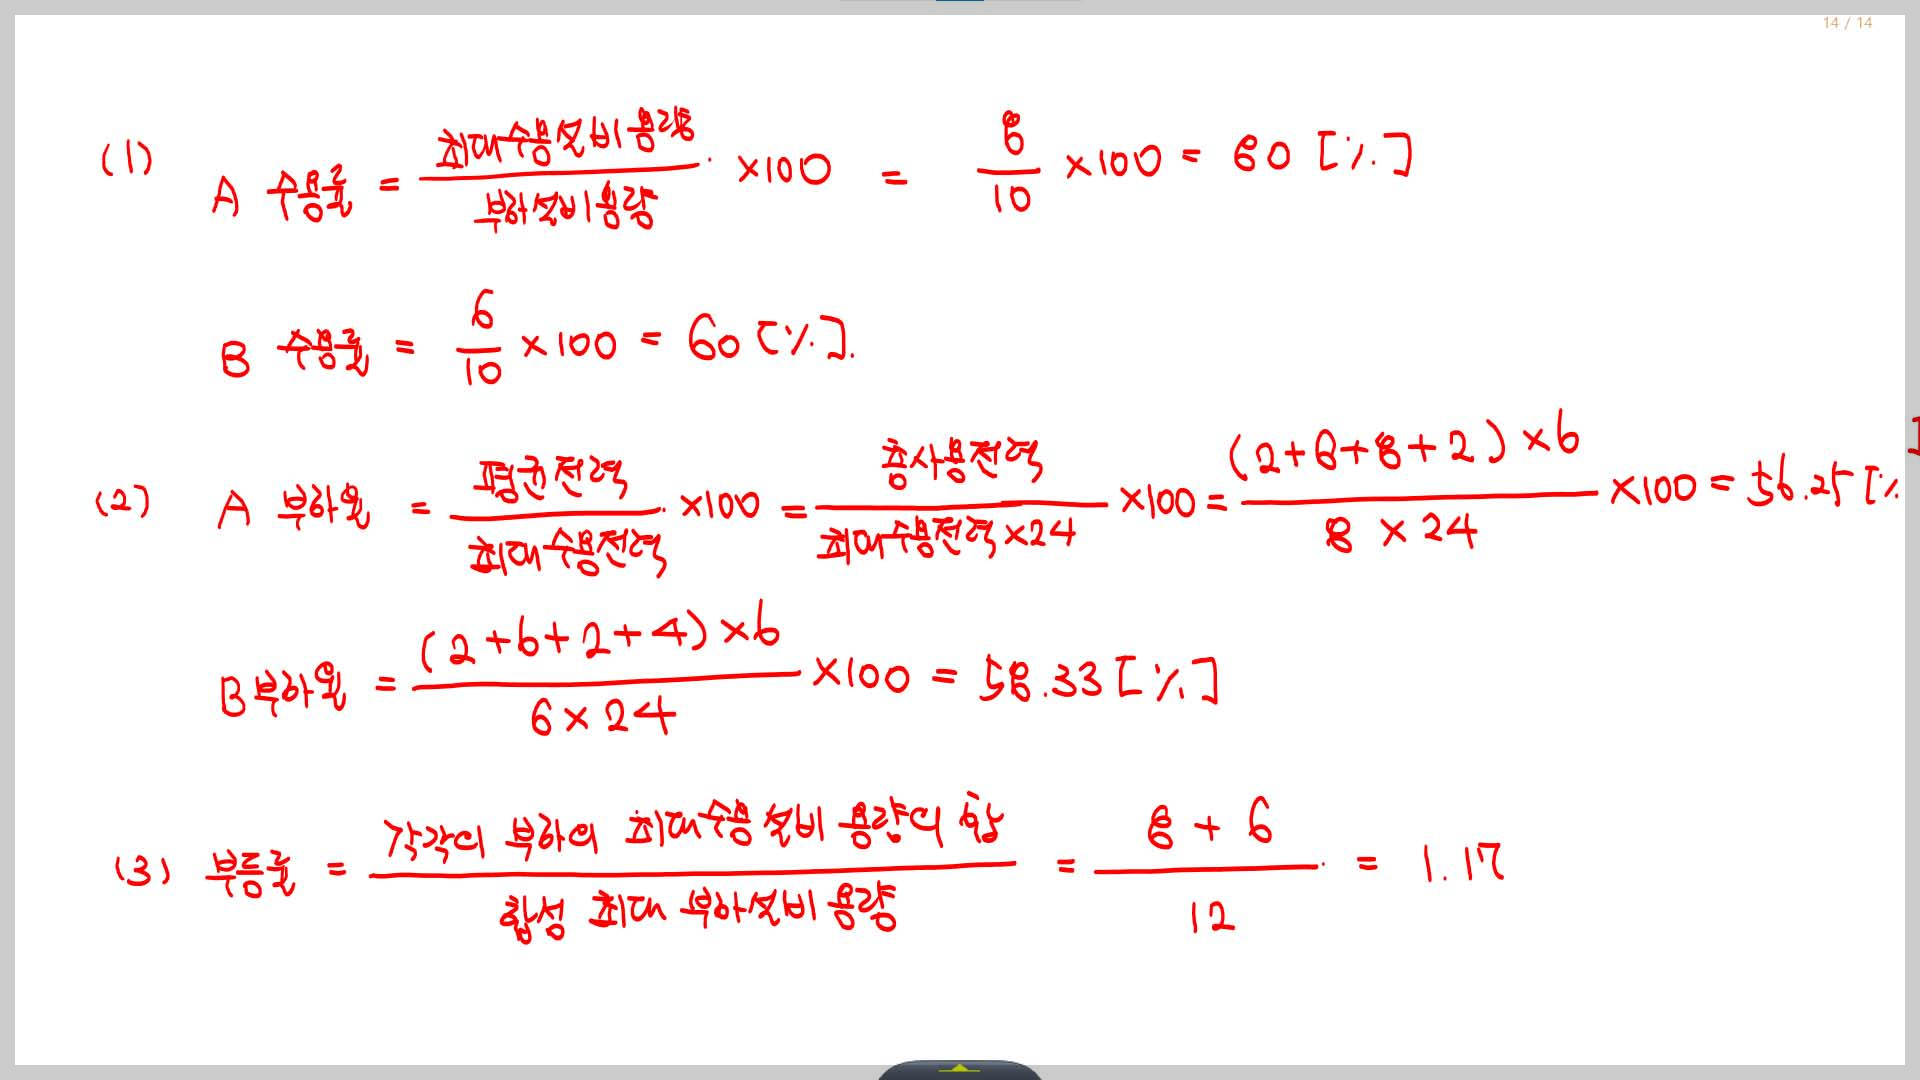 14 / 14
(1) A 수용률 = 최대수용설비용량 / 부하설비용량 ×100 = 8 / 10 ×100 = 80 [%]
B 수용률 = 6 / 10 ×100 = 60 [%].
(2) A 부하율 = 평균전력 / 최대수용전력 ×100 = 총사용전력 / 최대수용전력×24 ×100 = (2+8+8+2)×6 / 8×24 ×100 = 56.25 [%
B 부하율 = (2+6+2+4)×6 / 6×24 ×100 = 58.33 [%]
(3) 부등률 = 각각의 부하의 최대수용설비 용량의 합 / 합성 최대 부하설비용량 = 8+6 / 12 = 1.17